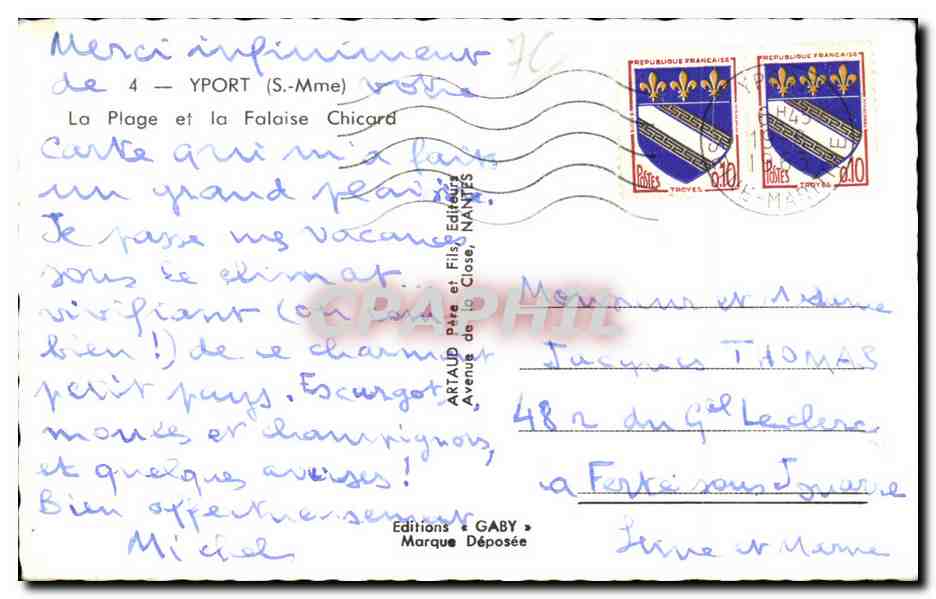 Merci infiniment
de votre
4 — YPORT (S.-Mme)
La Plage et la Falaise Chicard
carte qui m'a fait
un grand plaisir.
Je passe mes vacances
sous le climat
vivifiant (on est
bien !) de ce charmant
petit pays. Escargots,
moules et champignons,
et quelques averses !
Bien affectueusement
Michel
7C
ARTAUD Père et Fils, Editeurs
Avenue de la Close, NANTES
Editions « GABY »
Marque Déposée
REPUBLIQUE FRANÇAISE
POSTES 0.10
TROYES
REPUBLIQUE FRANÇAISE
POSTES 0.10
TROYES
CPAPHIL
Monsieur et Madame
Jacques THOMAS
48 r du Gel Leclerc
a Ferté sous Jouarre
Seine et Marne